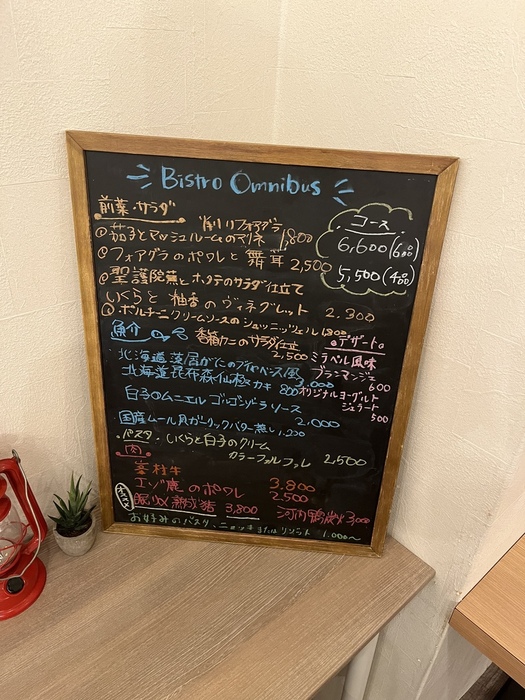 Bistro Omnibus
前菜・サラダ
削りフォアグラ
茄子とマッシュルームのマリネ 1,800
フォアグラのポワレと舞茸 2,500
聖護院蕪とホタテのサラダ仕立て
いくらと柚香のヴィネグレット 2.300
ポルチーニクリームソースのシュニッツェル 1,800
コース
6,600(
5,500(
魚介
香箱カニのサラダ仕立 2,500
北海道 のブイヤベース風 3,000
北海道昆布森仙鳳 カキ 800
白子のムニエル ゴルゴンゾーラソース 2.000
国産ムール貝ガーリックバター蒸し 1.200
デザート
ミラベル風味
ブランマンジェ 600
オリジナルヨーグルト
ジェラート 500
パスタ・いくらと白子のクリーム
カラーファルファレ 2,500
肉
峯村牛 3.800
エゾ鹿のポワレ 2.500
熟成 3,800
河内鴨炭火 3,000
お好みのパスタ、ニョッキまたはリゾット 1.000〜